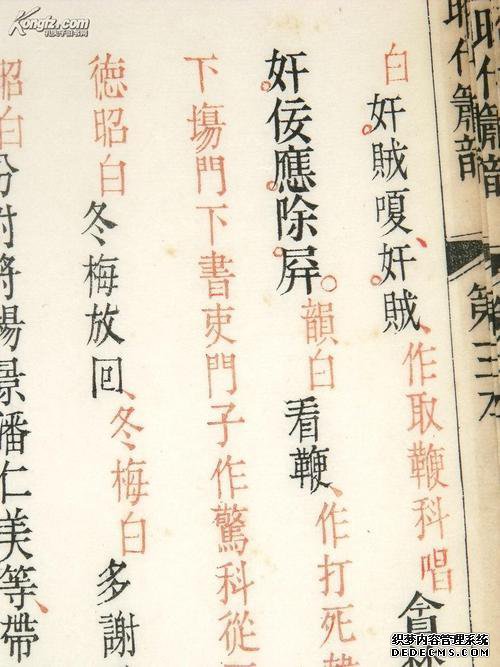 昭代簫韶
昭代簫韶 第三本
白奸賊嗄、奸賊、作取鞭科唱
奸佞應除屏韻白看鞭、作打死
下塲門下書吏門子作驚科從
德昭白冬梅放回、冬梅白多謝
昭白分付將楊景潘仁美等、帶
Kongfz.com
孔夫子旧书网
织梦内容管理系统
DEDECMS.COM